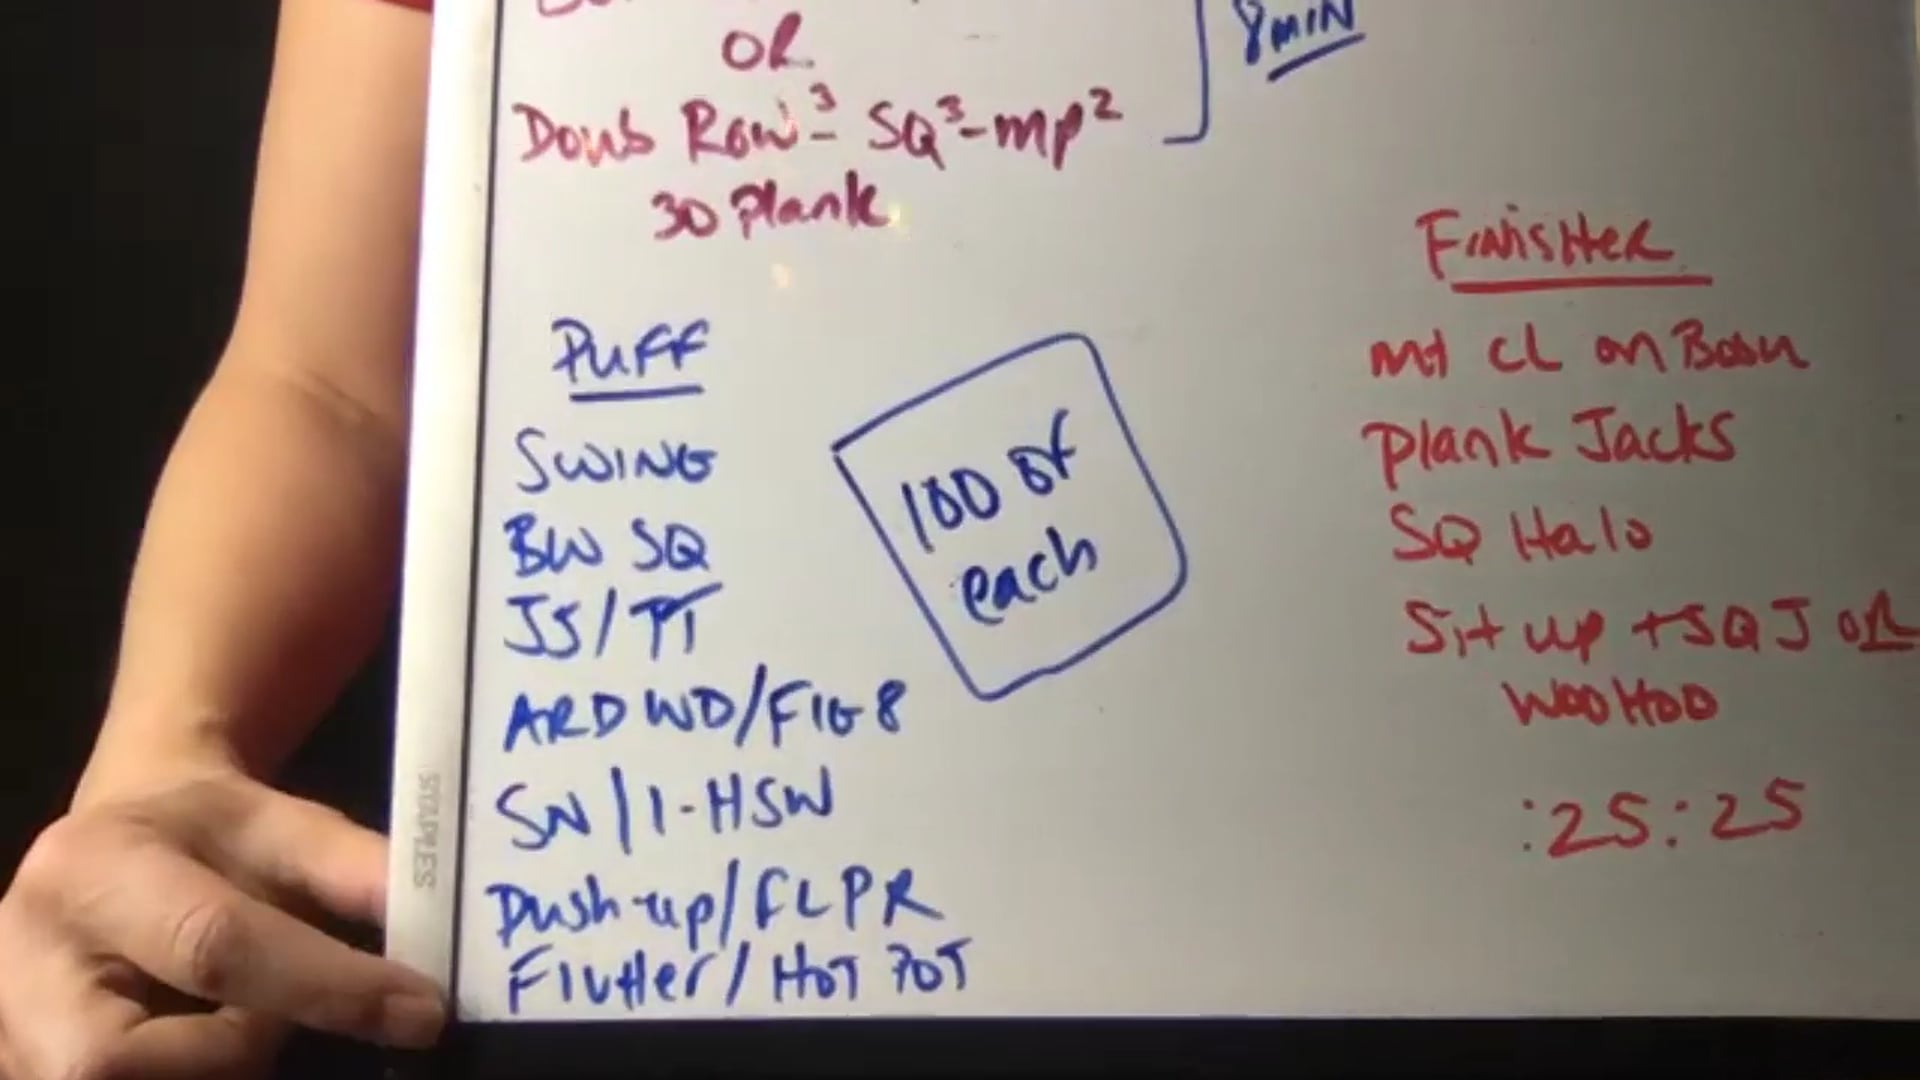 OR
Doub Row³- SQ³-mp²
30 Plank
8 MIN
Puff
SWING
BW SQ
JS/TT
ARD WD/FIG 8
SN/1-HSW
Push-up/FLPR
Flutter/HOT POT
100 of
each
FinisHeR
mt CL on Bosu
Plank Jacks
SQ Halo
Sit up +SQ J OR
WOOHOO
:25:25
STAPLES